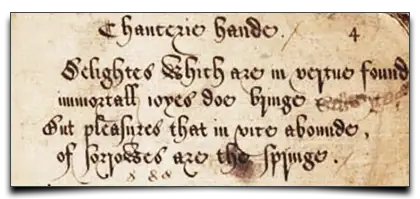 Chanterie hande. 4
Delightes Which are in vertue found
immortall ioyes doe bringe
But pleasures that in vice abounde,
of sorrowes are the springe.